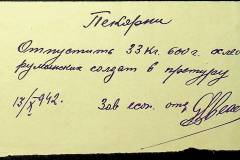 Пекарни
Отпустить 33 кг. 600 г. хле
румынских солдат в претуру
13/X 942. Зав есоп. отд